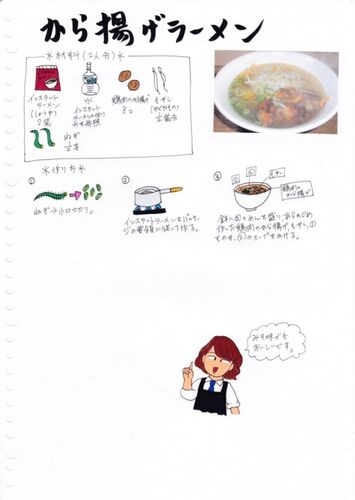 から揚げラーメン
※材料(2人分)※
インスタント
ラーメン
(しょうゆ)
2袋
水
インスタント
ラーメンの作り
方を参照
鶏肉のから揚げ
8コ
もやし
(ゆでたもの)
1/2袋分
ねぎ
1/2本
※作り方※
①
ねぎ→小口切り。
②
インスタントラーメンをパッケー
ジの要領に従って作る。
③
もやし
鶏肉の
から揚げ
鉢に②のめんを盛り、あらかじめ
作った鶏肉のから揚げ、もやし、①
をのせ、②のスープをかける。
みそ味でも
おいしいです。